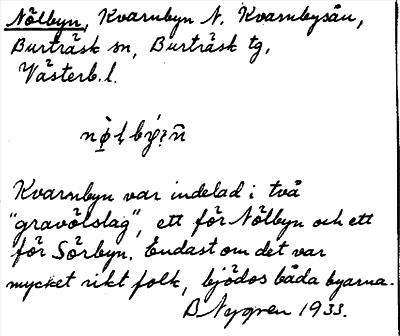 Nölbyn, Kvarnbyn N. Kvarnbysån,
Burträsk sn, Burträsk tg,
Västerb. l.
Kvarnbyn var indelad i två
"gravölslag", ett för Nölbyn och ett
för Sörbyn. Endast om det var
mycket rikt folk, bjödos båda byarna.
B Nygren 1933.